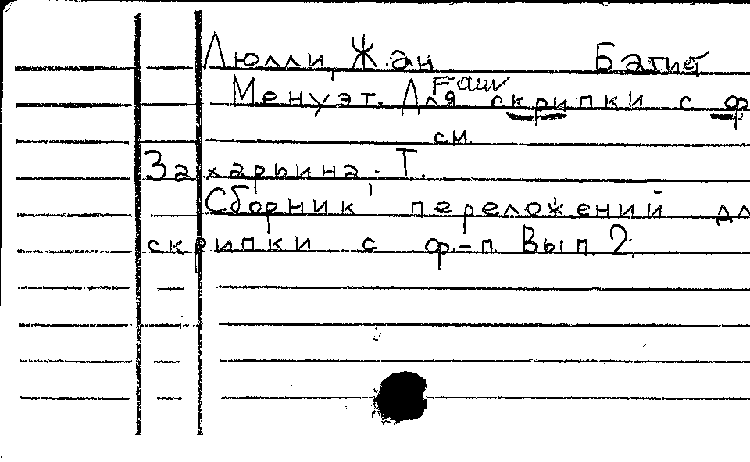 Люлли, Жан Батист
Менуэт. Для скрипки с ф
см.
Захарьина. Т.
Сборник переложений дл
скрипки с ф.-п Вып. 2.